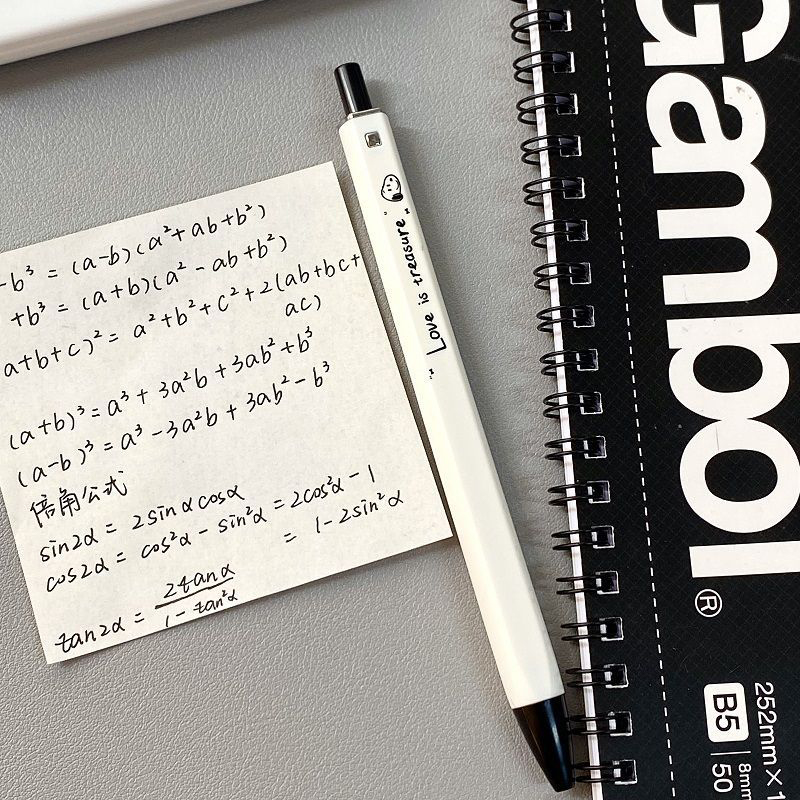 -b³ = (a-b)(a²+ab+b²)
+b³ = (a+b)(a²-ab+b²)
a+b+c)² = a²+b²+c²+2(ab+bc+
ac)
(a+b)³ = a³+3a²b+3ab²+b³
(a-b)³ = a³-3a²b+3ab²-b³
倍角公式
sin2α = 2sinαcosα
cos2α = cos²α-sin²α = 2cos²α-1
= 1-2sin²α
tan2α = 2tanα / 1-tan²α
"Love is treasure."
Gambol®
B5
252mm×1
50
8mm